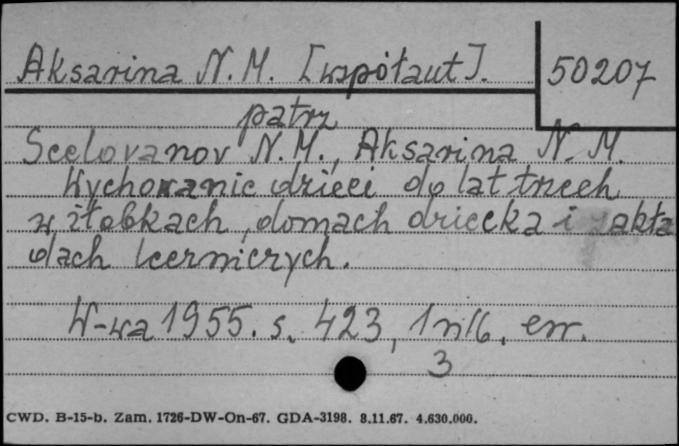 Aksarina N. M. [współaut]. 50207
patrz
Scelovanov N. M., Aksarina N. M.
Wychowanie dzieci do lat trzech
w żłobkach, domach dziecka i zakła
dach leczniczych.
W-wa 1955. s. 423, 1 nlb, err.
3
CWD. B-15-b. Zam. 1726-DW-On-67. GDA-3198. 8.11.67. 4.630.000.